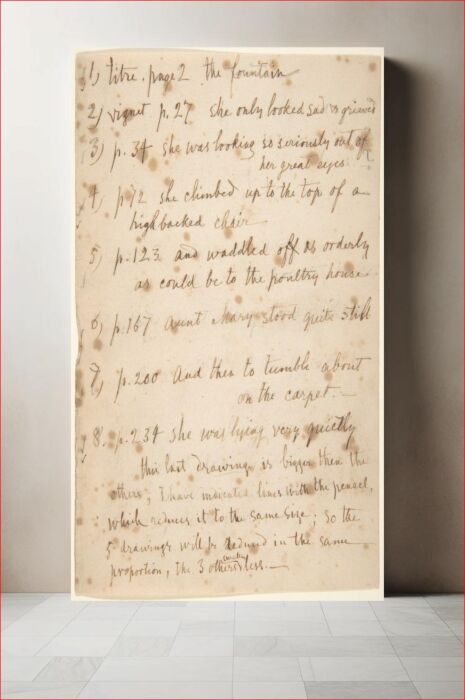 1) titre. page 2 the fountain
2) vignet p. 27 she only looked sad or grieved
3) p. 34 she was looking so seriously out of
her great eyes
4) p. 72 she climbed up to the top of a
high backed chair
5) p. 123 and waddled off as orderly
as could be to the poultry house
6) p. 167 Aunt Mary stood quite still
7) p. 200 And then to tumble about
on the carpet. —
8. p. 234 she was lying very quietly
this last drawing is bigger then the
others; I have indicated lines with the pencel,
which reduces it to the same size; so the
5 drawings will be reduced in the same
proportion, the 3 others less. —